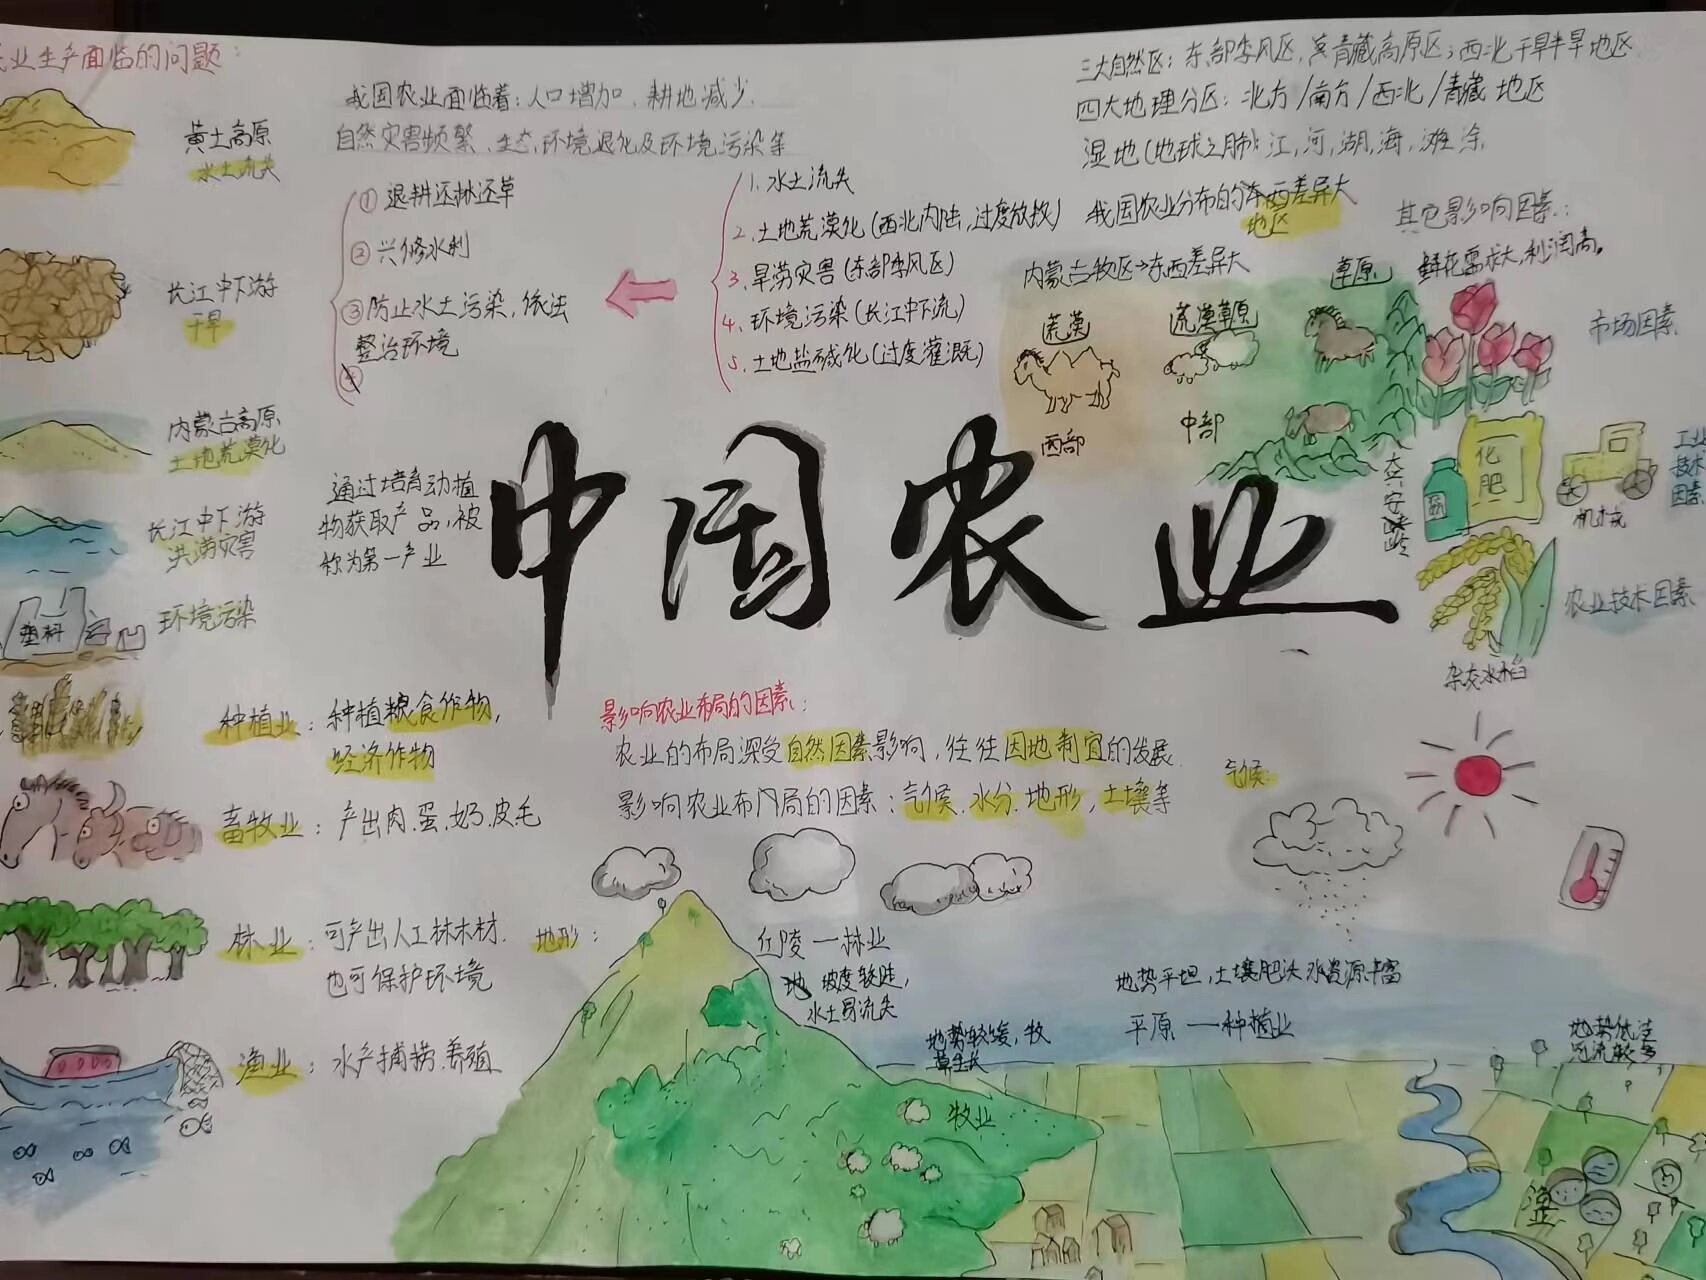 业生产面临的问题:
黄土高原
水土流失
长江中下游
干旱
内蒙古高原
土地荒漠化
长江中下游
洪涝灾害
塑料
环境污染
我国农业面临着:人口增加、耕地减少、
自然灾害频繁、生态,环境退化及环境污染等
① 退耕还林还草
② 兴修水利
③ 防止水土污染,依法
整治环境
1. 水土流失
2. 土地荒漠化(西北内陆,过度放牧)
3. 旱涝灾害(东部季风区)
4. 环境污染(长江中下流)
5. 土地盐碱化(过度灌溉)
三大自然区:东部季风区,青藏高原区;西北干旱半旱地区
四大地理分区:北方/南方/西北/青藏 地区
湿地(地球之肺):江,河,湖,海,滩涂
我国农业分布的东西差异大
地区
内蒙古牧区→东西差异大
荒漠
荒漠草原
草原
西部
中部
大兴安岭
其它影响因素:
鲜花需求大,利润高。
市场因素
化肥
机械
工业技术因素
农业技术因素
杂交水稻
通过培育动植
物获取产品,被
称为第一产业
中国农业
种植业:种植粮食作物,
经济作物
畜牧业:产出肉.蛋.奶.皮毛
林业:可产出人工林木材.
也可保护环境
渔业:水产捕捞.养殖
影响农业布局的因素:
农业的布局深受自然因素影响,往往因地制宜的发展.
影响农业布局的因素:气候.水分.地形,土壤等
气候:
地形:
丘陵 — 林业
坡度较陡,
水土易流失
地势较缓,牧
草生长
牧业
地势平坦,土壤肥沃 水资源丰富
平原 — 种植业
地势低洼
河流较多
渔业